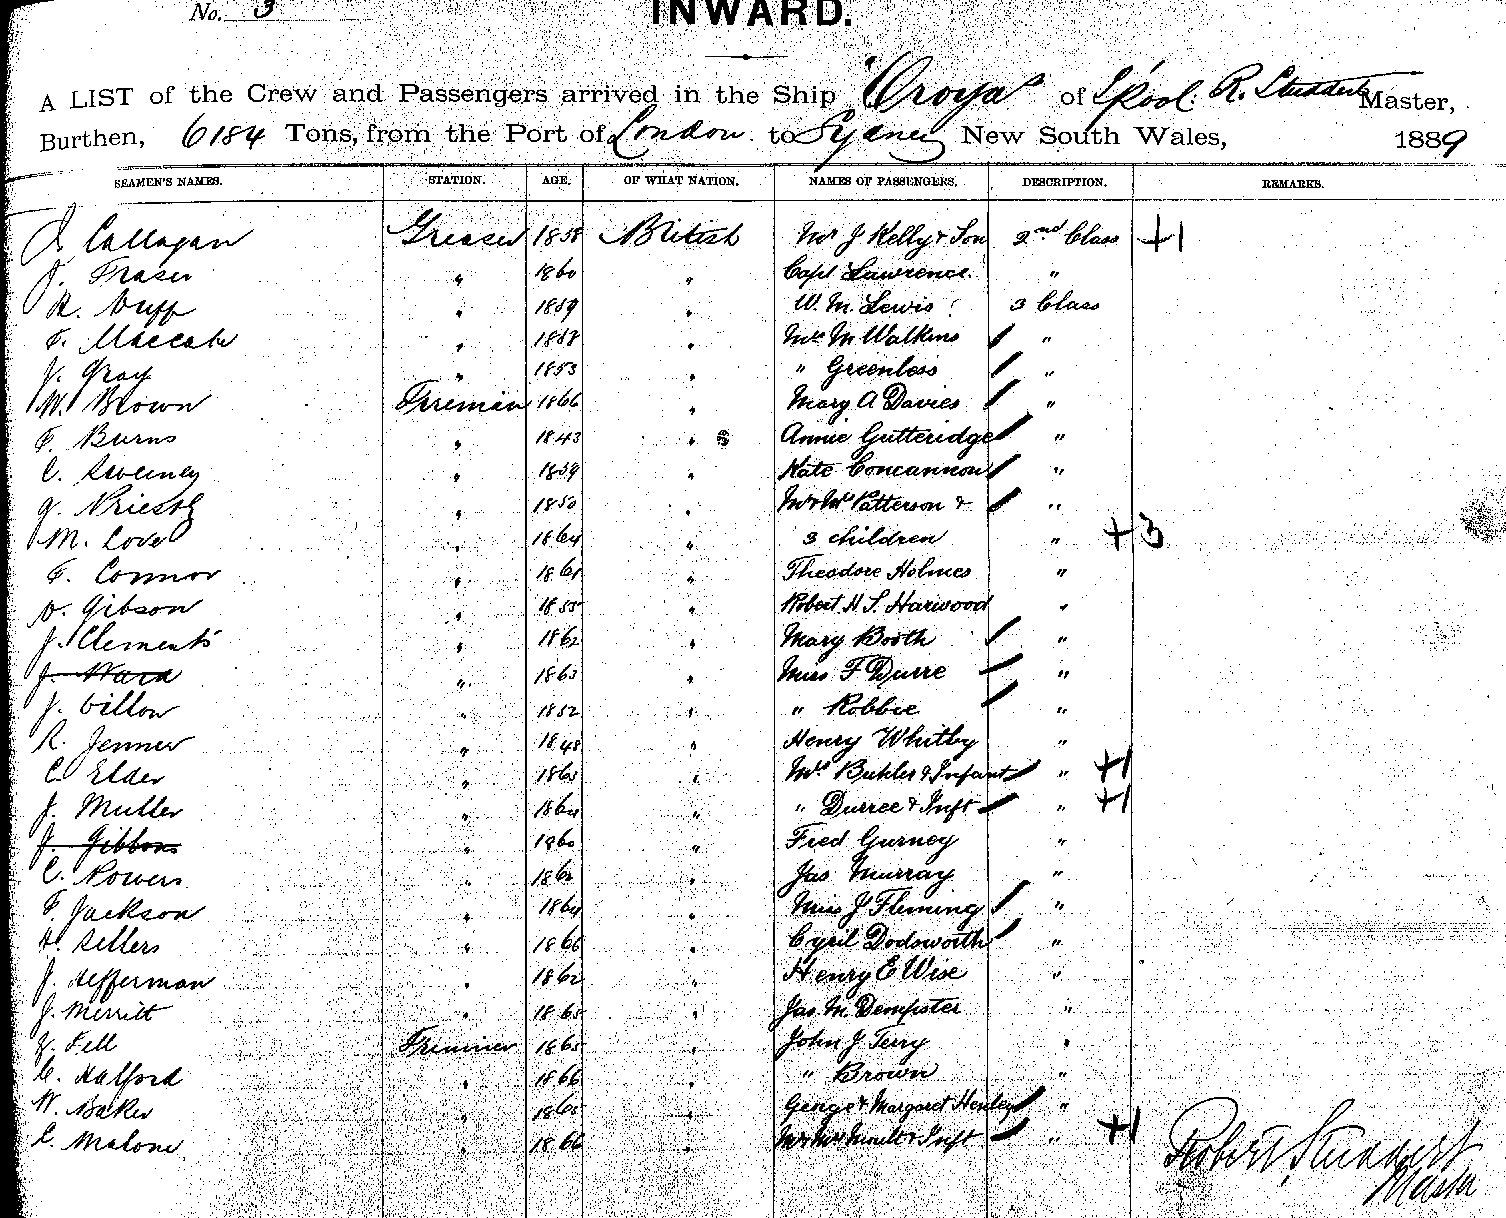 No. 3
INWARD.
A LIST of the Crew and Passengers arrived in the Ship "Oroya" of L'pool. R. Studdert Master,
Burthen, 6184 Tons, from the Port of London to Sydney New South Wales, 1889
SEAMEN'S NAMES. STATION. AGE. OF WHAT NATION. NAMES OF PASSENGERS. DESCRIPTION. REMARKS.
J Callagan Greaser 1858 British Mr J Kelly & Son 2nd Class +1
J. Fraser " 1860 " Capt Lawrence. "
H. Duff " 1859 " W. M. Lewis 3 Class
F. Maccabe " 1858 " Mrs M Walkins "
J. Gray " 1853 " " Greenless "
W. Brown Fireman 1866 " Mary A Davies "
F. Burns " 1843 " Annie Gutteridge "
C. Sweeney " 1859 " Kate Concannon "
G. Priestly " 1850 " Mr & Mrs Patterson & "
M. Love " 1864 " 3 children " +3
F. Connor " 1861 " Theodore Holmes "
D. Gibson " 1855 " Robert H. S. Harwood "
J. Clements " 1862 " Mary Booth "
J. Ward " 1863 " Miss F Durre "
J. Dillon " 1852 " " Robbie "
R. Jenner " 1848 " Henry Whitby "
C. Elder " 1865 " Mrs Buhler & Infant " +1
J. Muller " 1864 " " Durree & Inft " +1
J. Gibbons " 1860 " Fred Gurney "
C. Powers " 1862 " Jas Murray "
F. Jackson " 1864 " Miss J Fleming "
H. Sellers " 1866 " Cyril Dodsworth "
J. Hefferman " 1862 " Henry E Wise "
J. Merritt " 1865 " Jas. M. Dempster "
Y. Fell Trimmer 1865 " John J Terry "
C. Halford " 1866 " " Brown "
W. Baker " 1865 " George & Margaret Henley "
C. Malone " 1866 " Mr & Mrs & Inft " +1
Robert Studdert
Master